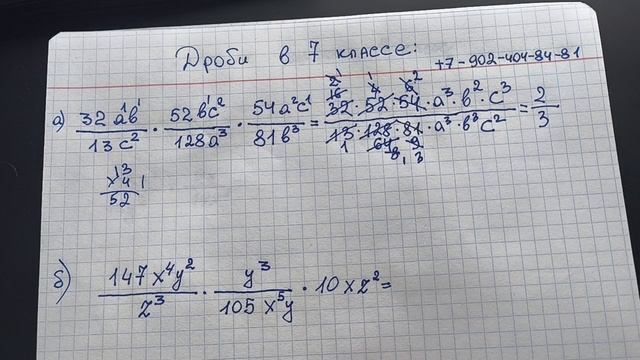 Дроби в 7 классе:
+7-902-404-84-81
а) 32 a¹b¹/13 c² · 52 b¹c²/128 a³ · 54 a²c¹/81 b³ = 32 · 52 · 54 · a³ · b² · c³/13 · 128 · 81 · a³ · b³ c² = 2/3
13
× 4
52
б) 147 x⁴y²/z³ · y³/105 x⁵y · 10 x z² =